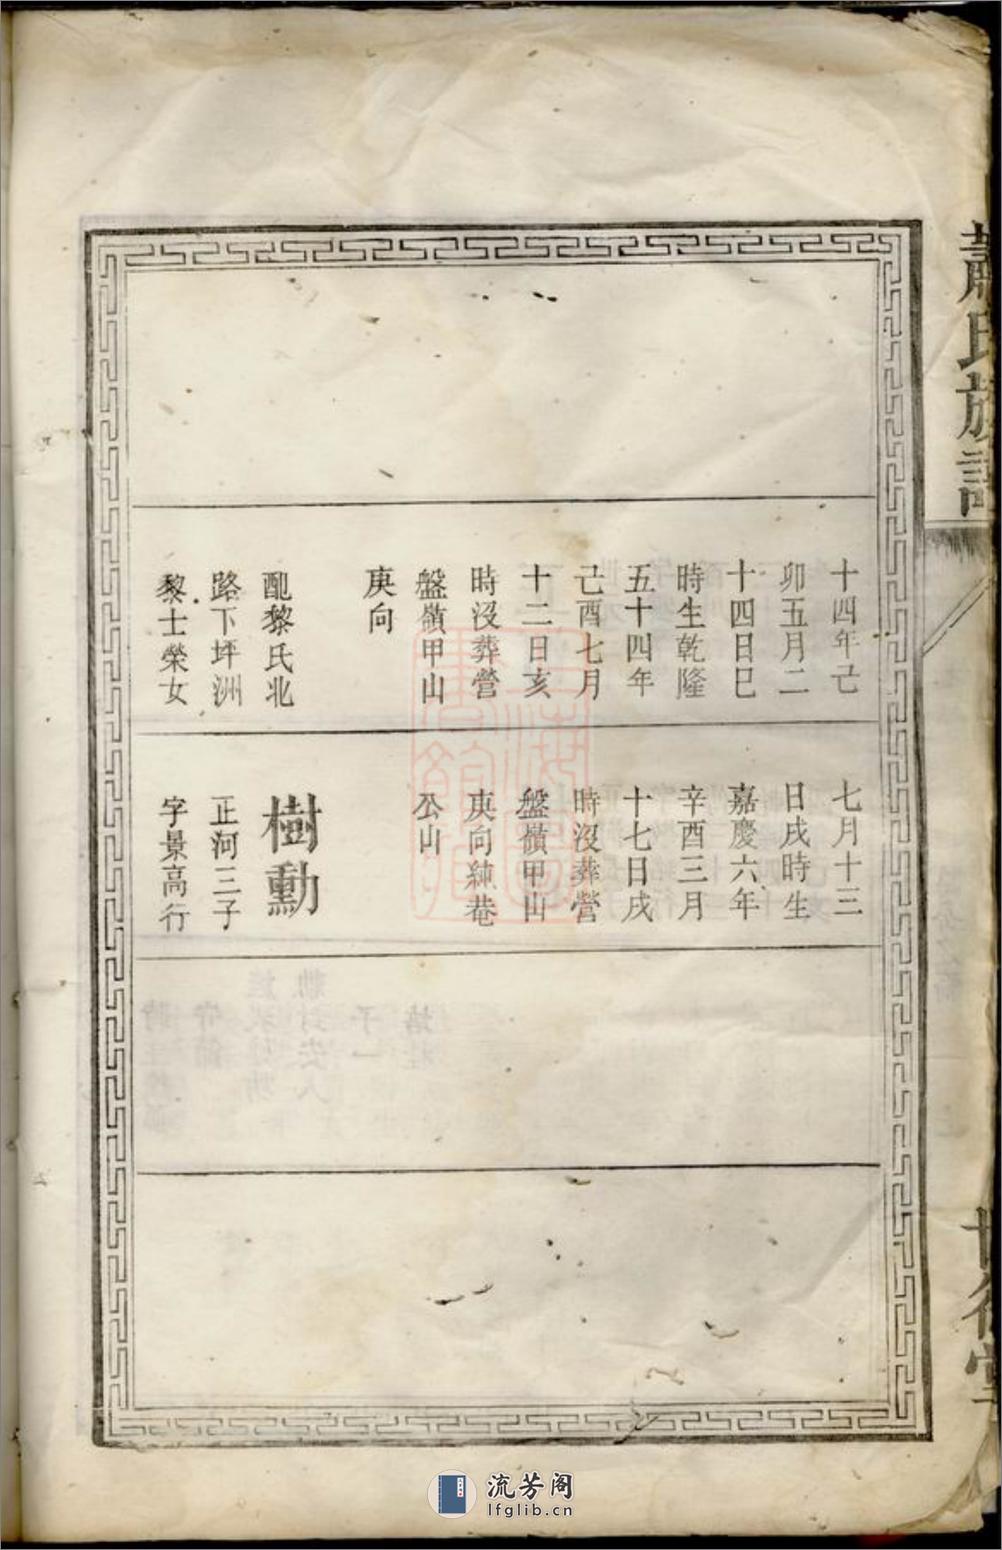 蕭氏族譜
十四年己
卯五月二
十四日巳
時生乾隆
五十四年
己酉七月
十二日亥
時沒葬營
盤嶺甲山
庚向
配黎氏北
路下坪洲
黎士榮女
七月十三
日戌時生
嘉慶六年
辛酉三月
十七日戌
時沒葬營
盤嶺甲山
庚向純菴
公山
樹勳
正河三子
字景高行
流芳阁
lfglib.cn